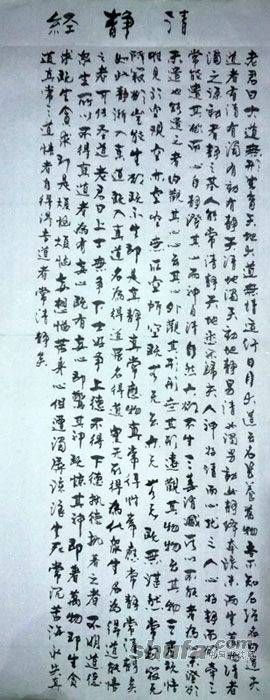 清靜經
老君曰大道無形生育天地大道無情運行日月大道無名長養萬物吾不知名強名曰道夫
道者有清有濁有動有靜天清地濁天動地靜男清女濁男動女靜降本流末而生萬物清者
濁之源動者靜之基人能常清靜天地悉皆歸夫人神好清而心擾之人心好靜而慾牽之
常能遣其慾而心自靜澄其心而神自清自然六慾不生三毒消滅所以不能者為心未澄慾
未遣也能遣之者內觀其心心無其心外觀其形形無其形遠觀其物物無其物三者既悟
唯見於空觀空亦空空無所空所空既無無無亦無無無既無湛然常寂寂無
所寂慾豈能生慾既不生即是真靜真常應物真常得性常應常靜常清靜矣
如此清靜漸入真道既入真道名為得道雖名得道實無所得為化眾生名為得道能悟
之者可傳聖道老君曰上士無爭下士好爭上德不德下德執德執著之者不明道德
眾生所以不得真道者為有妄心既有妄心即驚其神既驚其神即著萬物即生貪
求既生貪求即是煩惱煩惱妄想憂苦身心但遭濁辱流浪生死常沉苦海永失真
道真常之道悟者自得得悟道者常清靜矣